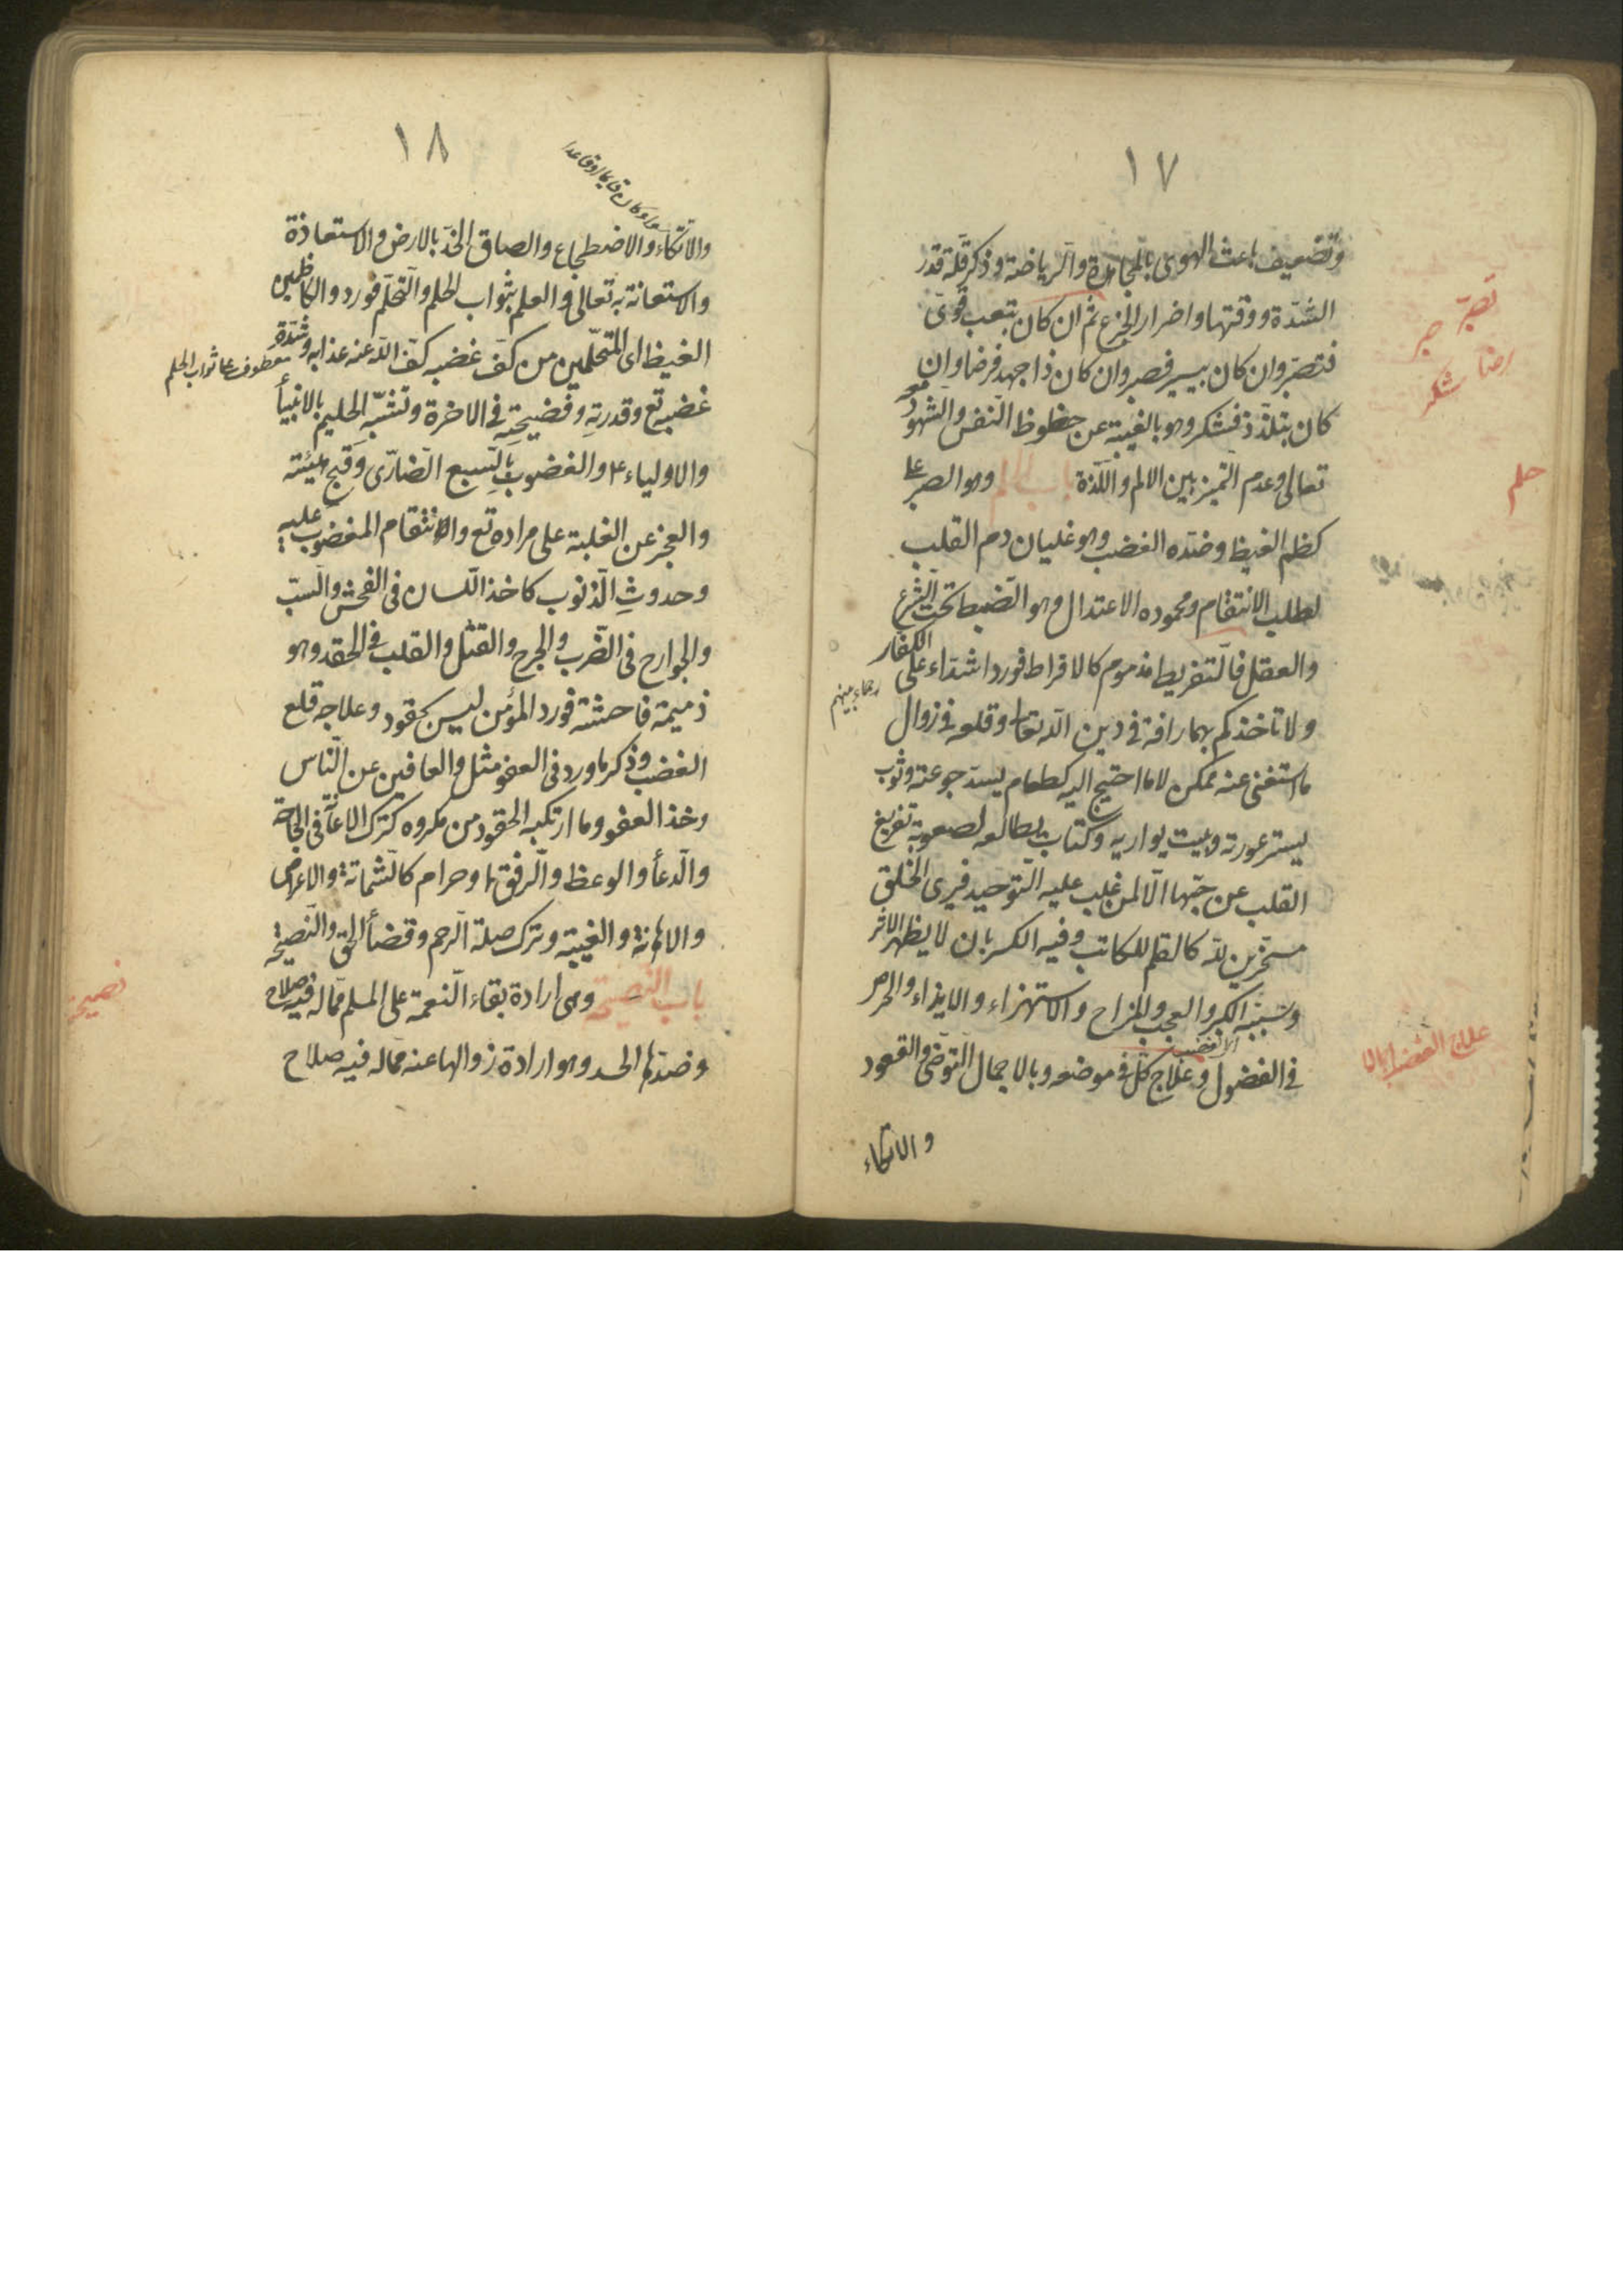 ١٧
وتضعيف باعث الهوى بالمجاهدة والرياضة وذكر قلة قدر
الشدة ووقتها واضرار الجزع ثم ان كان بتعب قوى
فتصبر وان كان بيسير فصبر وان كان ذا جهد فرضا وان
كان بتلذذ فشكر وهو بالغيبة عن حظوظ النفس والشهود
تعالى وعدم التميز بين الالم واللذة باب الحلم وهو الصبر على
كظم الغيظ وضده الغضب وهو غليان دم القلب
لطلب الانتقام ومحموده الاعتدال وهو الضبط تحت الشرع
والعقل فالتفريط مذموم كالافراط فورد اشداء على الكفار
رحماء بينهم
ولا تاخذكم بهما رافة في دين الله تعا وقلعه في زوال
ما استغنى عنه ممكن لا ما احتيج اليه كطعام يسد جوعته وثوب
يستر عورته وبيت يواريه وكتاب يطالعه لصعوبة تفريغ
القلب عن حبها الا لمن غلب عليه التوحيد فيرى الخلق
مسخرين لله كالقلم للكاتب وفيه الكسر بان لا يظهر الاثر
وسببه الكبر والعجب والمزاح والاستهزاء والايذاء والحرص
في الفضول وعلاج كل في موضعه وبالاجمال التوضى والقعود
والاتكاء
تصبر
صبر
رضا
شكر
حلم
علاج الغضب
١٨
والاتكاء والاضطجاع والصاق الخد بالارض والاستعاذة
والاستعانة به تعالى والعلم بثواب الحلم والتحلم فورد والكاظمين
الغيظ اى المتحلمين من كف غضبه كف الله عنه عذابه وشدة
معطوف على ثواب الحلم
غضبه تع وقدرته وفضيحته في الاخرة وتشبه الحليم بالانبيأ
والاولياء والغضوب بالسبع الضارى وقبح هيئته
والعجز عن الغلبة على مراده تع والانتقام المغضوب عليه
وحدوث الذنوب كاخذ اللسان فى الفحش والسب
والجوارح فى الضرب والجرح والقتل والقلب فى الحقد وهو
ذميمة فاحشة فورد المؤمن ليس بحقود وعلاجه قلع
الغضب وذكر ما ورد فى العفو مثل والعافين عن الناس
وخذ العفو وما ارتكبه الحقود من مكروه كترك الاعانة فى الحاجة
والدعأ والوعظ والرفق او حرام كالشماتة والاعراض
والاهانة والغيبة وترك صلة الرحم وقضأ الحق والنصيحة
باب النصيحة وهى ارادة بقاء النعمة على المسلم مما له فيه صلاح
وضدها الحسد وهو ارادة زوالها عنه مما له فيه صلاح
نصيحة